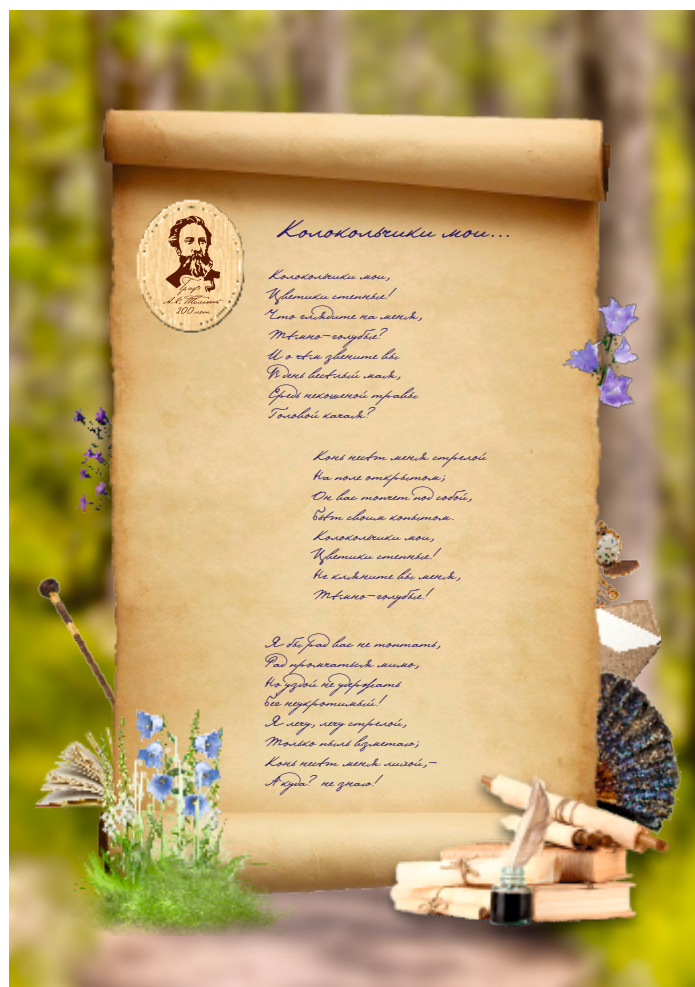 Колокольчики мои...
Граф
А.К. Толстой
200 лет
Колокольчики мои,
Цветики степные!
Что глядите на меня,
Тёмно-голубые?
И о чём звените вы
В день весёлый мая,
Средь некошеной травы
Головой качая?
Конь несёт меня стрелой
На поле открытом;
Он вас топчет под собой,
Бьёт своим копытом.
Колокольчики мои,
Цветики степные!
Не кляните вы меня,
Тёмно-голубые!
Я бы рад вас не топтать,
Рад промчаться мимо,
Но уздой не удержать
Бег неукротимый!
Я лечу, лечу стрелой,
Только пыль взметаю;
Конь несёт меня лихой,-
А куда? не знаю!